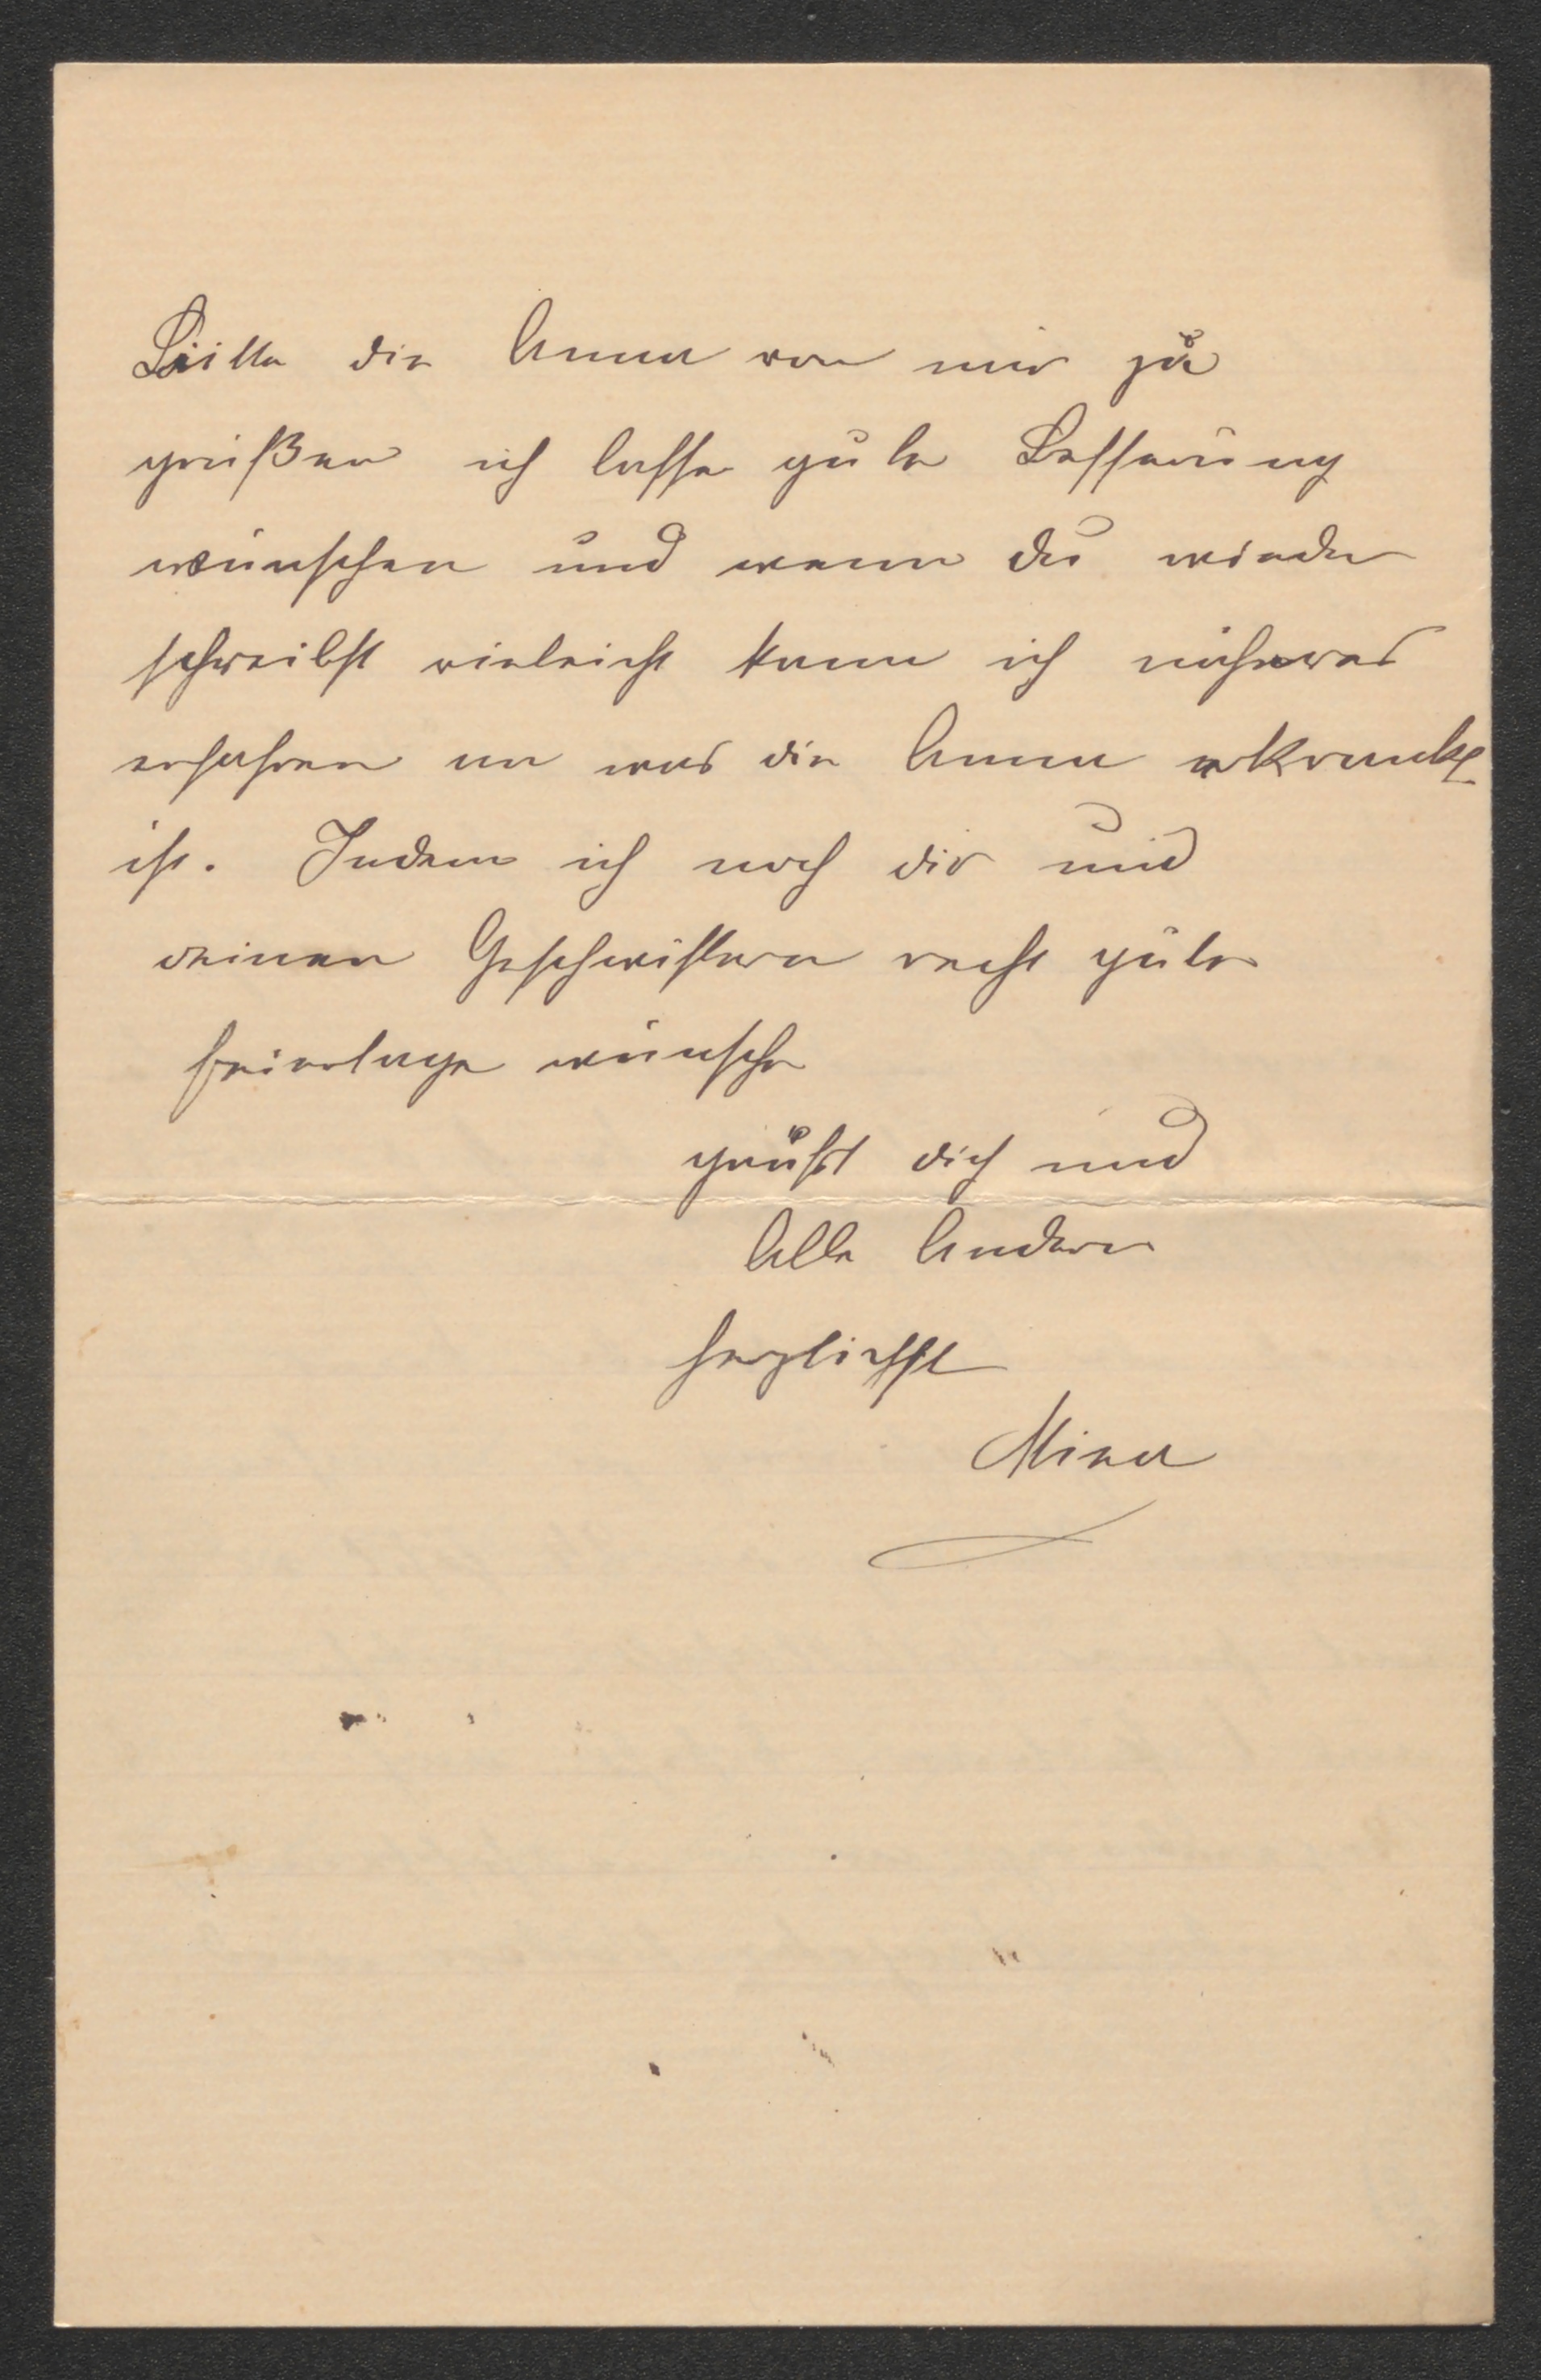 Bitte die Anna von mir zu
grüßen ich lasse gute Besserung
wünschen und wenn du wieder
schreibst vieleicht kann ich näheres
erfahren an was die Anna erkrankt
ist. Indem ich noch dir und
deinen Geschwistern recht gute
Feiertage wünsche
grüßt dich und
Alle Andern
herzlichst
Mina